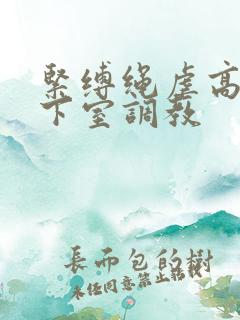 緊縛绳虐高
下室調教
長而包的樹
未任同意禁止轉載